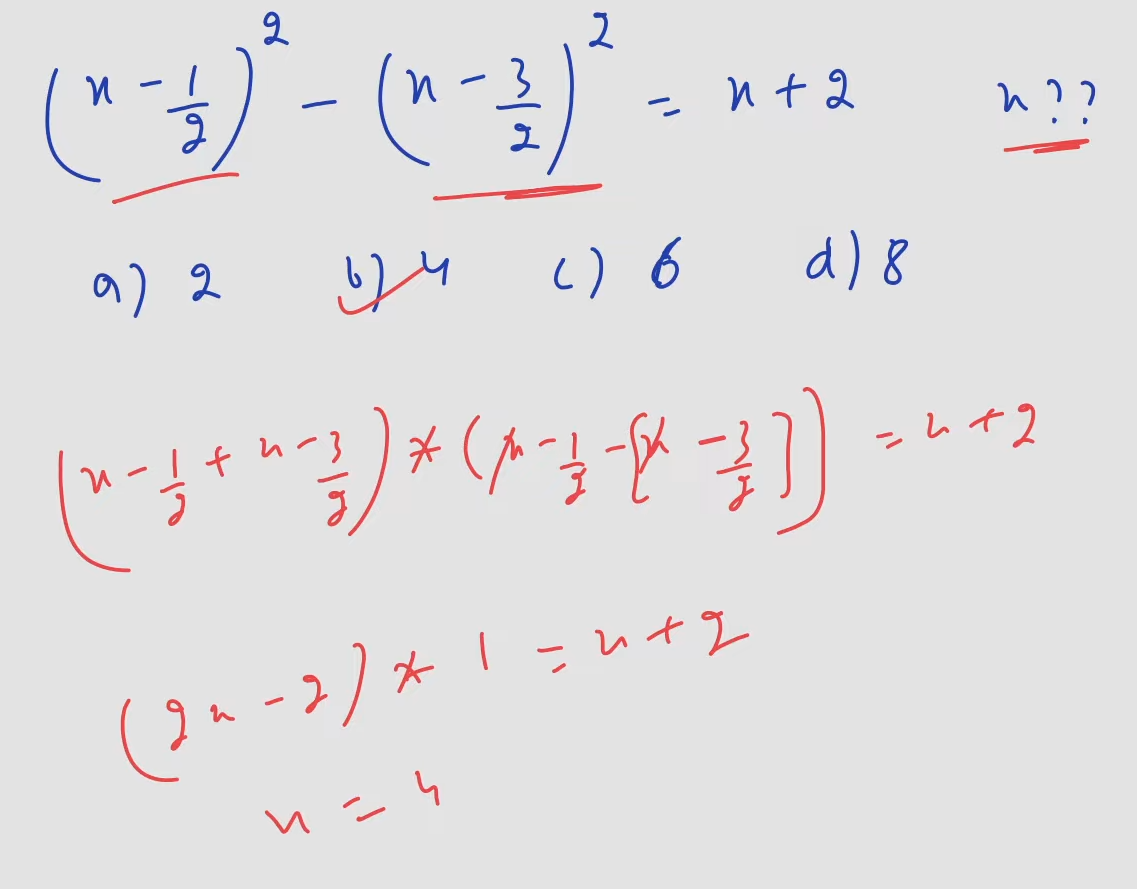 (x - 1/2)² - (x - 3/2)² = x + 2 x??
a) 2 b) 4 c) 6 d) 8
(x - 1/2 + x - 3/2) * (x - 1/2 - [x - 3/2])) = x + 2
(2x - 2) * 1 = x + 2
x = 4